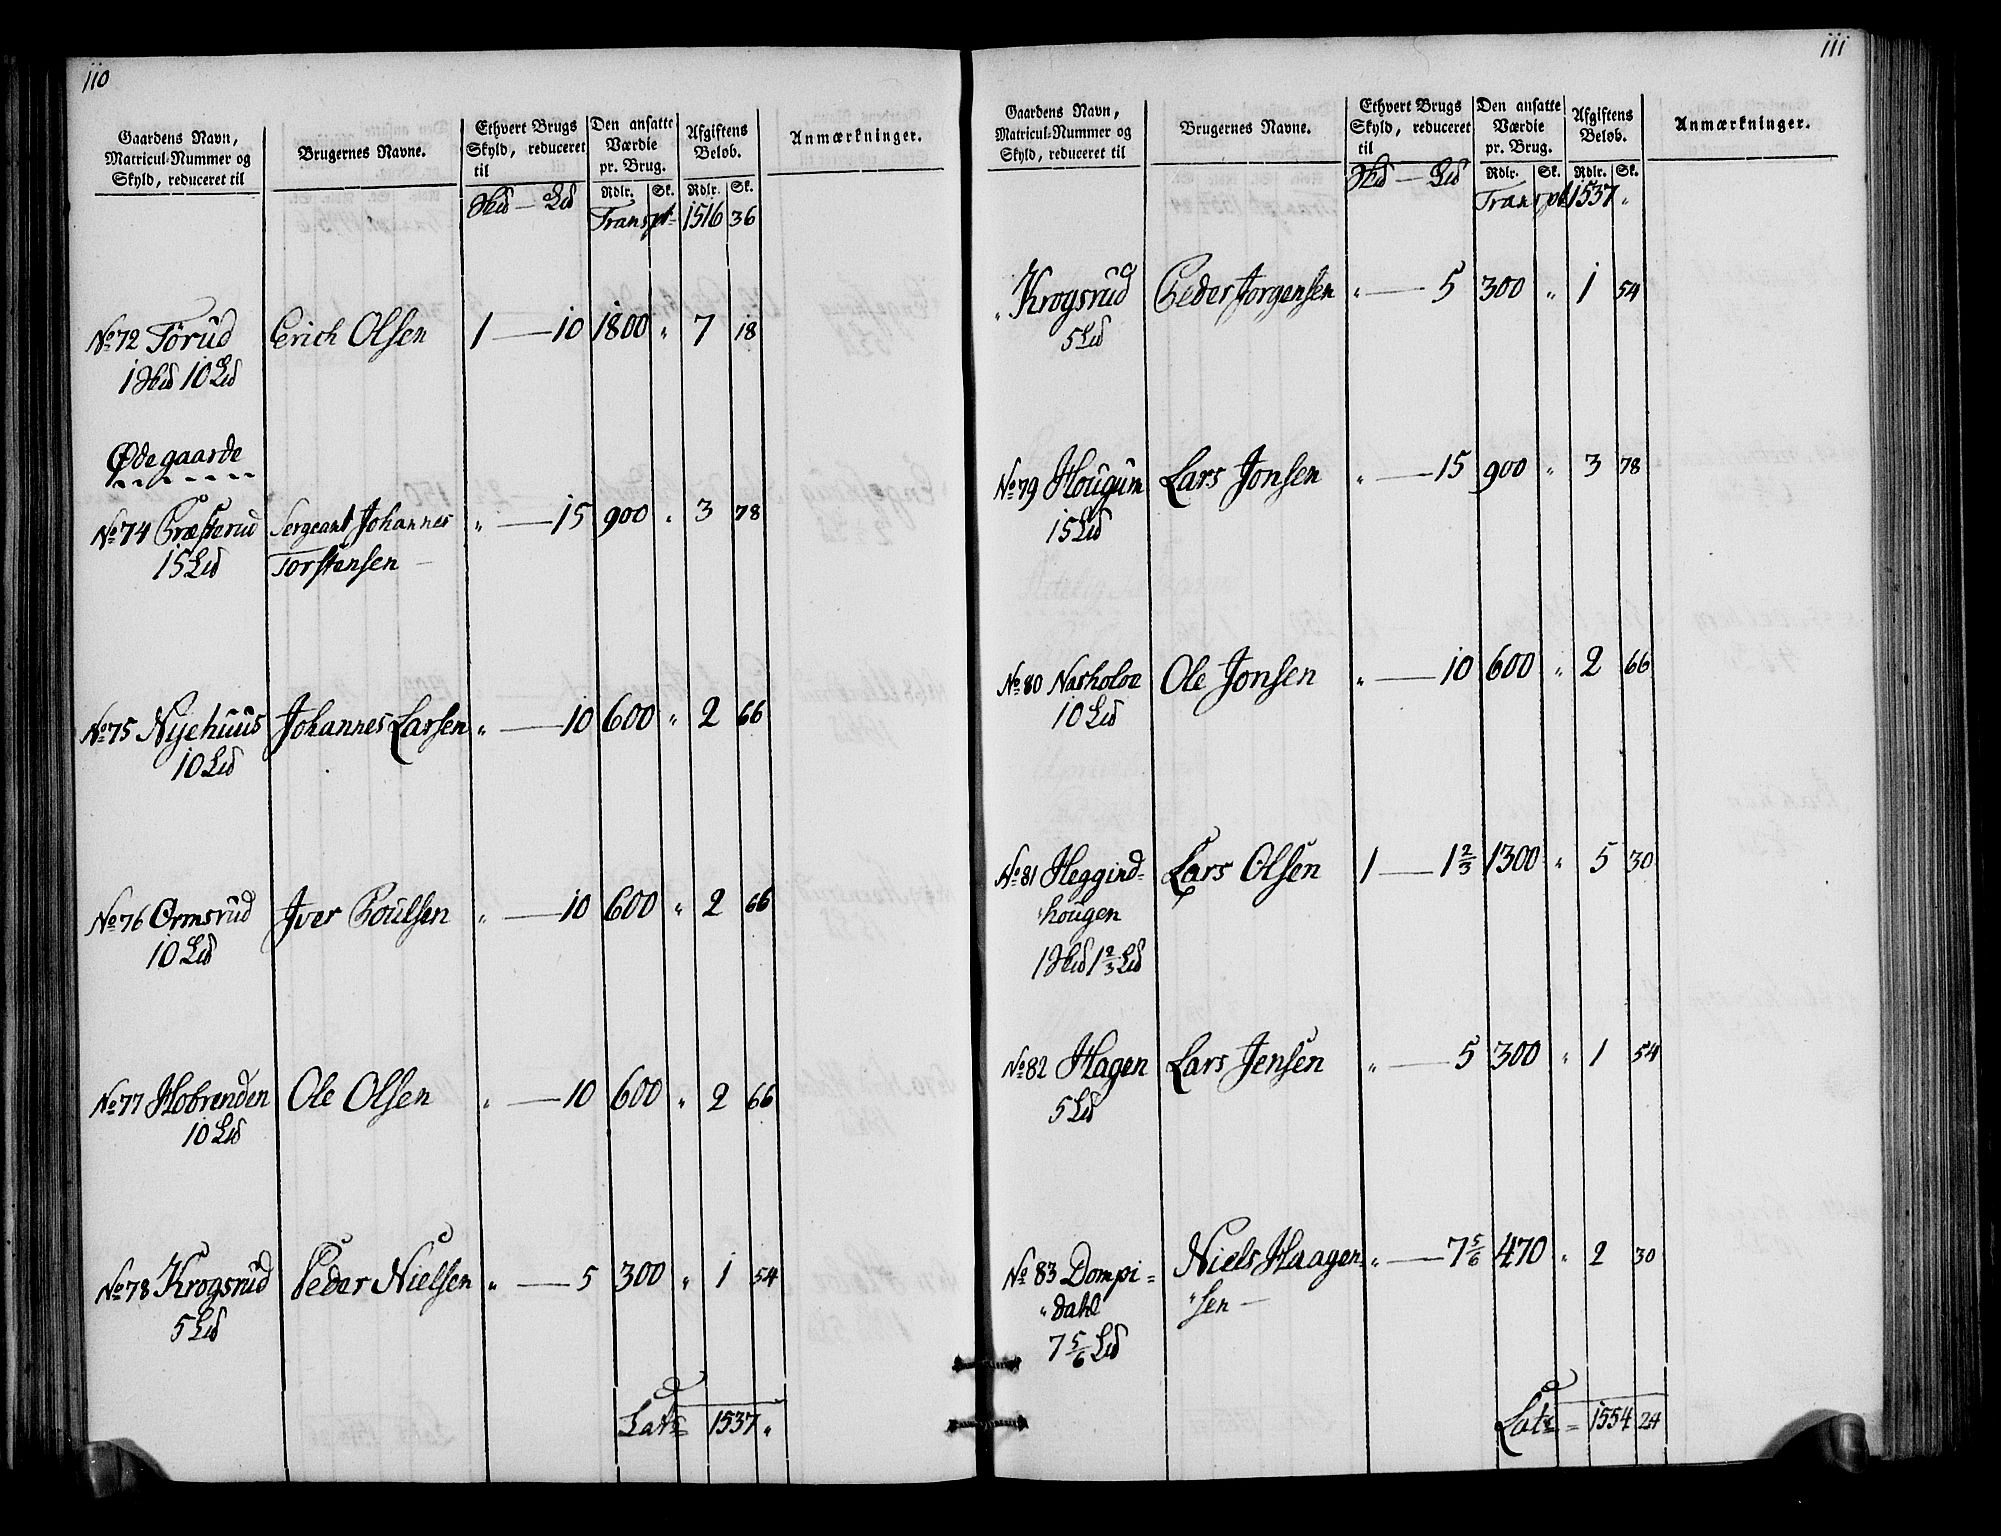 110
Gaardens Navn, Matricul-Nummer og Skyld, reduceret til
Brugernes Navne.
Ethvert Brugs Skyld, reduceret til
Den ansatte Værdie pr. Brug.
Afgiftens Beløb.
Anmærkninger.
Rdlr. Sk. Rdlr. Sk.
Hud — Ld Transpt 1516 36
No 72 Törud Erich Olsen 1 — 10 1800 " 7 18
1 Hud 10 Ld
Ødegaarde
No 74 Præsterud Sergeant Johannes " — 15 900 " 3 78
15 Ld Torstensen —
No 75 Nyehuus Johannes Larsen " — 10 600 " 2 66
10 Ld
No 76 Ormsrud Iver Poulsen " — 10 600 " 2 66
10 Ld
No 77 Hobrenden Ole Olsen " — 10 600 " 2 66
10 Ld
No 78 Krogsrud Peder Nielsen " — 5 300 " 1 54
5 Ld
Late 1537 "
111
Gaardens Navn, Matricul-Nummer og Skyld, reduceret til
Brugernes Navne.
Ethvert Brugs Skyld, reduceret til
Den ansatte Værdie pr. Brug.
Afgiftens Beløb.
Anmærkninger.
Rdlr. Sk. Rdlr. Sk.
Hud — Ld Transpt 1537 "
" Krogsrud Peder Jorgensen " — 5 300 " 1 54
5 Ld
No 79 Hougum Lars Jonsen " — 15 900 " 3 78
15 Ld
No 80 Ole Jonsen " — 10 600 " 2 66
10 Ld
No 81 Heggind= Lars Olsen 1 — 1 2/3 1300 " 5 30
"hougen
1 Hud 1 2/3 Ld
No 82 Hagen Lars Jensen " — 5 300 " 1 54
5 Ld
No 83 Dompi= Niels Haagen= " — 7 5/6 470 " 2 30
"dahl "sen —
7 5/6 Ld
Late = 1554 24